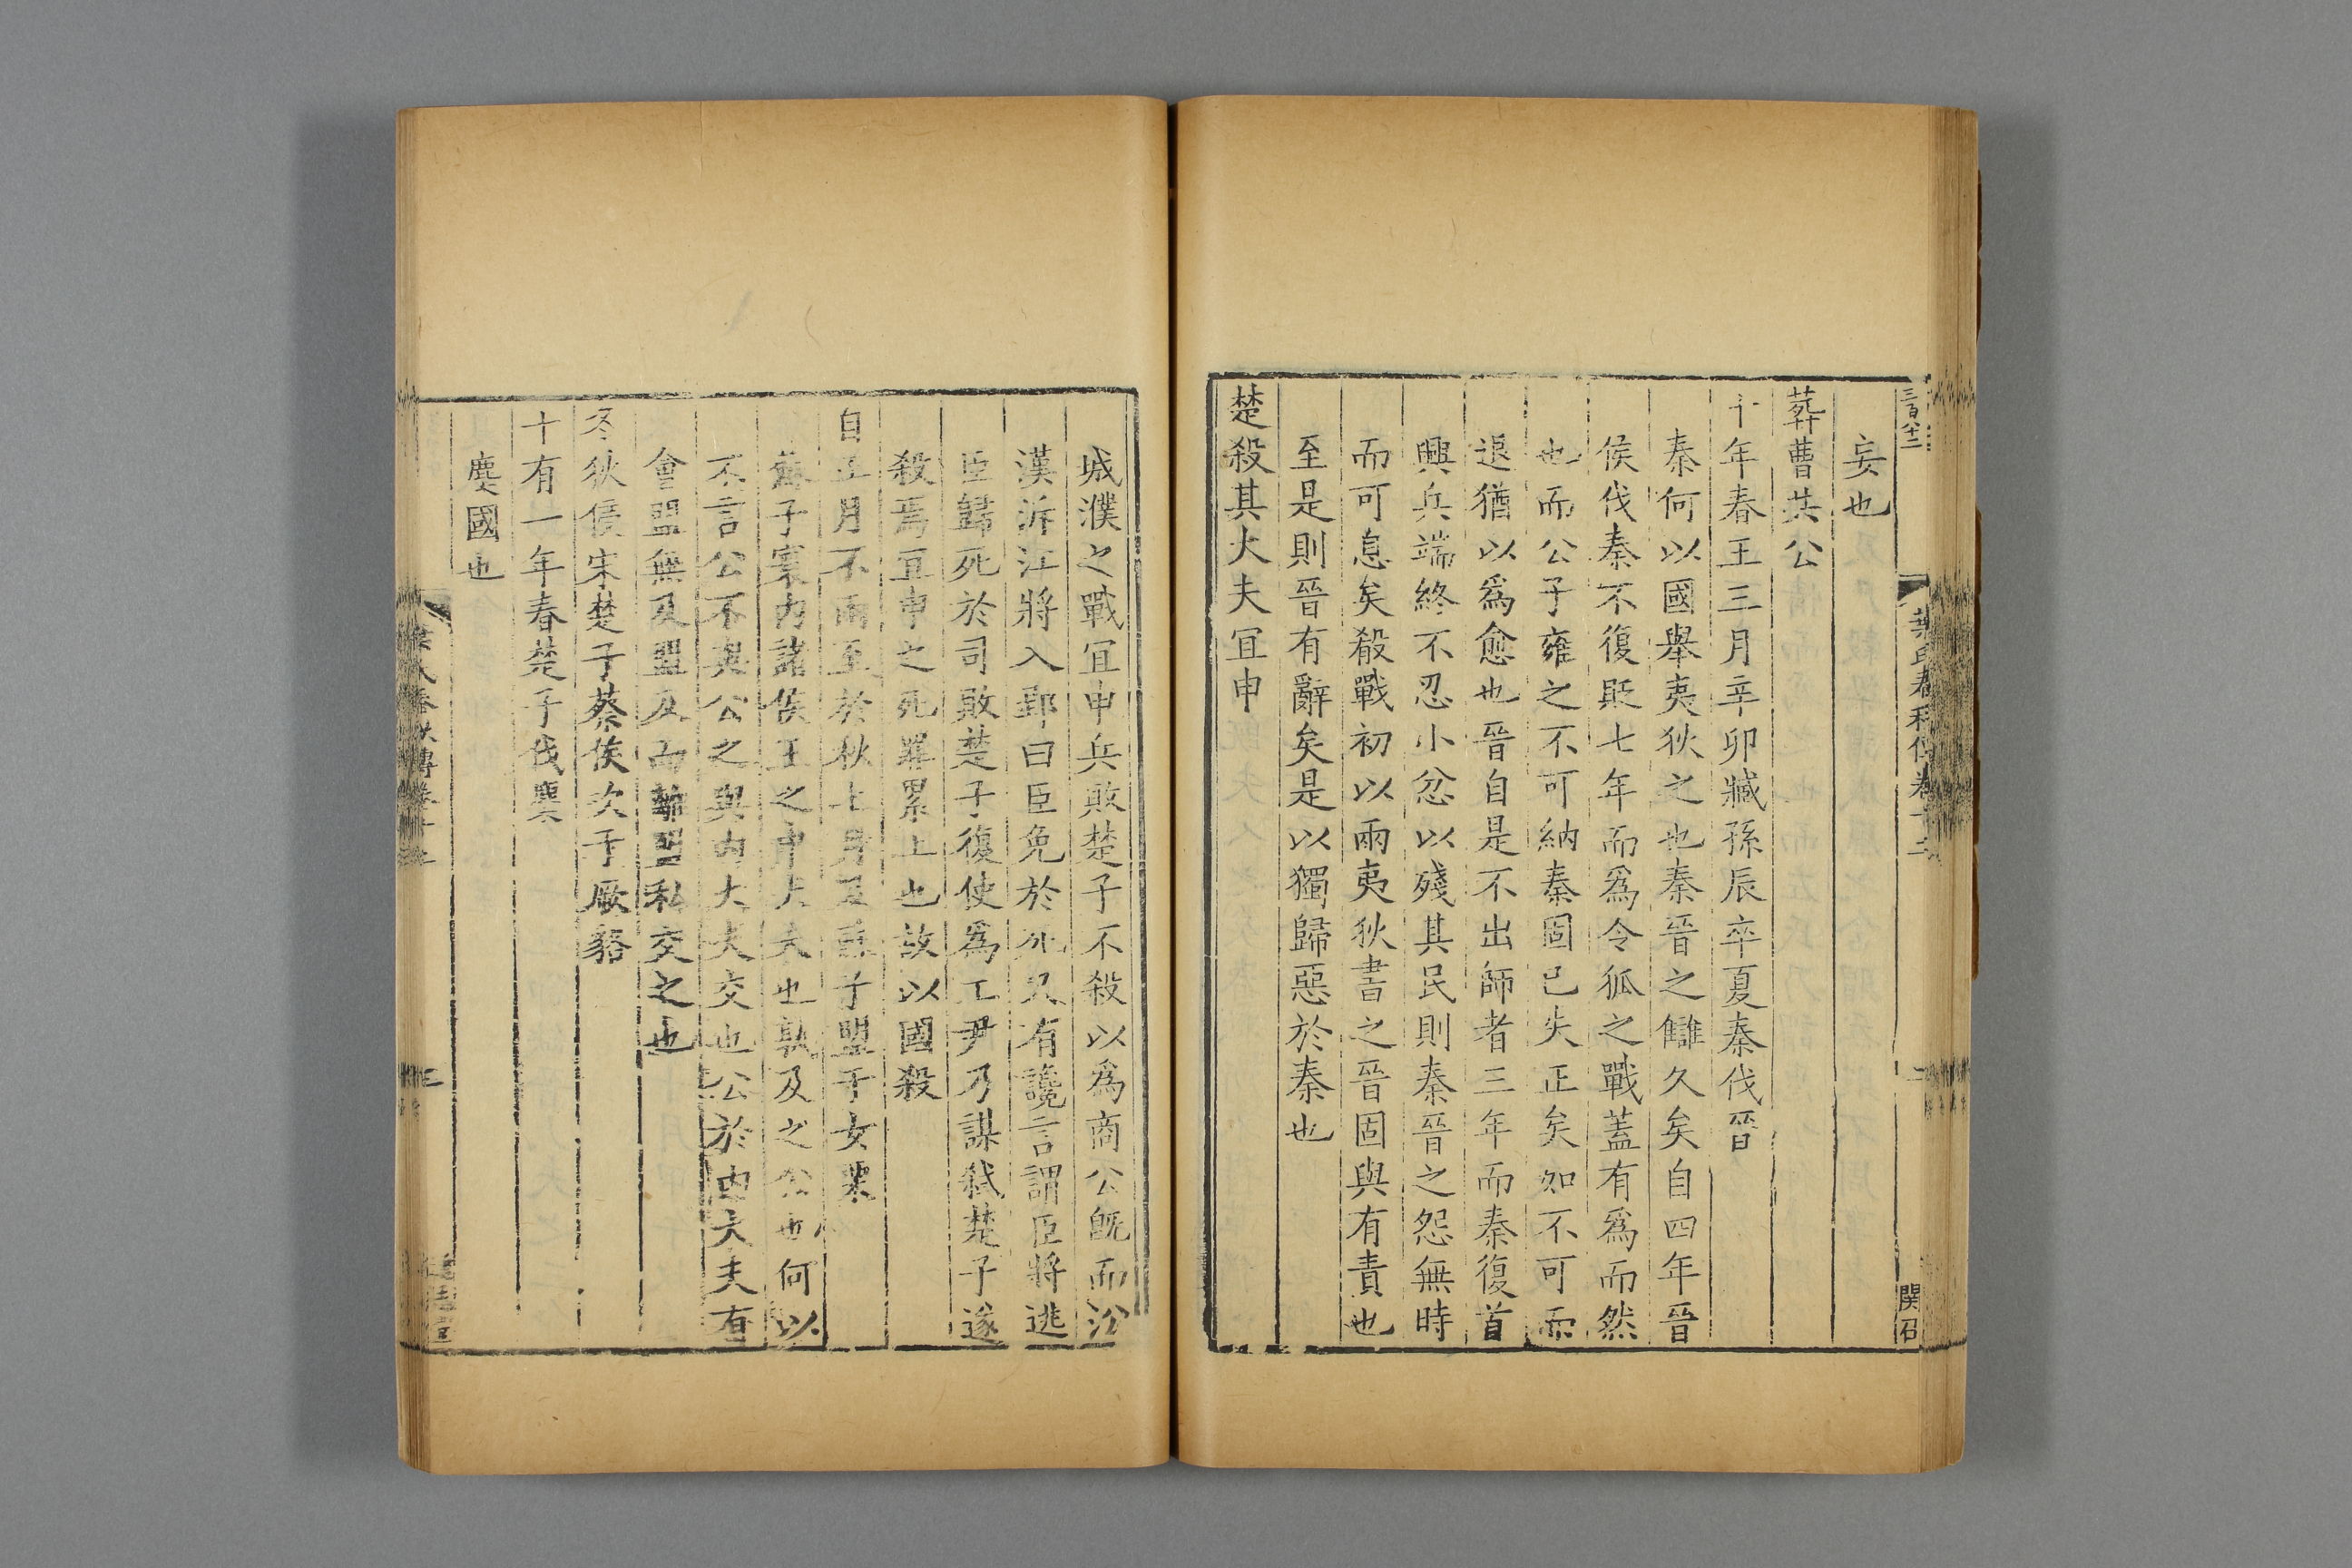 三百八十二
葉氏春秋傳卷十二
関召
妄也
葬曹共公
十年春王三月辛卯臧孫辰卒夏秦伐晉
秦何以國舉夷狄之也秦晉之讎久矣自四年晉
侯伐秦不復貶七年而爲令狐之戰蓋有爲而然
也而公子雍之不可納秦固已失正矣如不可而
退猶以爲愈也晉自是不出師者三年而秦復首
興兵端終不忍小忿以殘其民則秦晉之怨無時
而可息矣殽戰初以兩夷狄書之晉固與有責也
至是則晉有辭矣是以獨歸惡於秦也
楚殺其大夫宜申
城濮之戰宜申兵敗楚子不殺以爲商公旣而沿
漢泝江將入郢曰臣免於死又有讒言謂臣將逃
臣歸死於司敗楚子復使爲工尹乃謀弒楚子遂
殺焉宜申之死罪累上也故以國殺
自正月不雨至於秋七月及蘇子盟于女栗
蘇子寰內諸侯王之中大夫也孰及之公也何以
不言公不與公之與內大夫交也公於內大夫有
會盟無及盟及而輙盟私交之也
冬狄侵宋楚子蔡侯次于厥貉
十有一年春楚子伐麇
麇國也
葉氏春秋傳卷十二
三